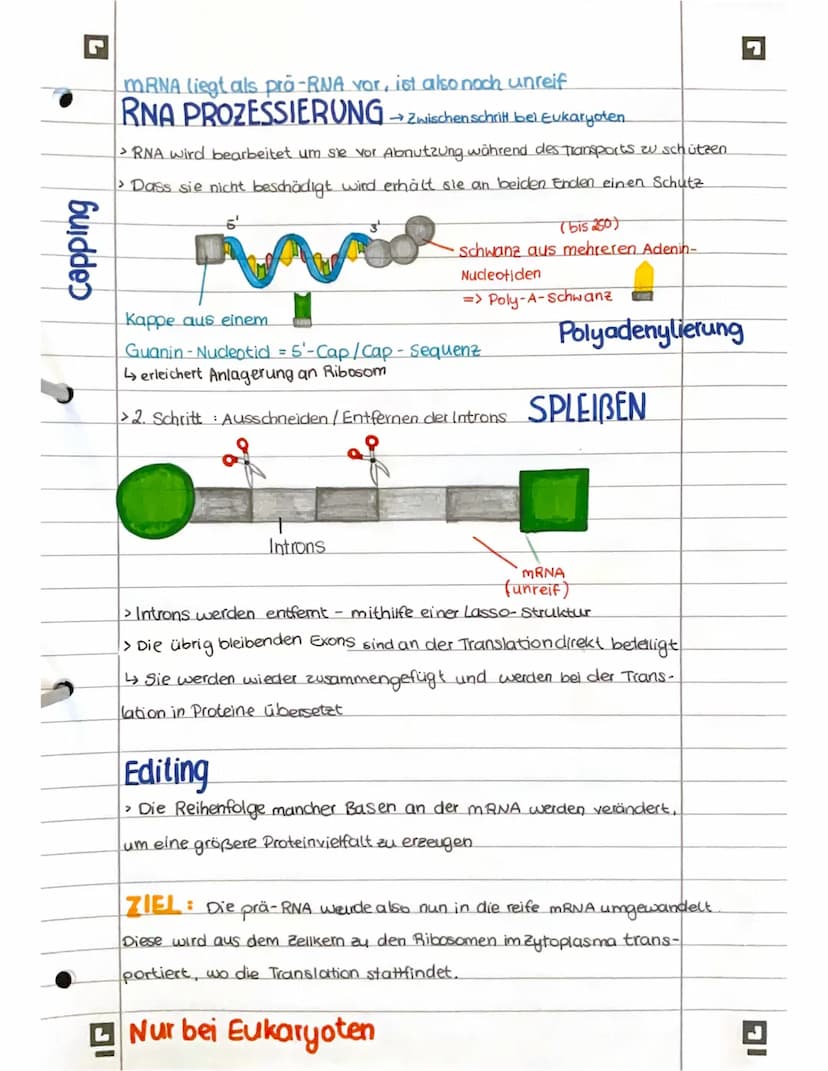 mRNA liegt als prä-RNA vor, ist also noch unreif
RNA PROZESSIERUNG → Zwischenschritt bei Eukaryoten
> RNA wird bearbeitet um sie vor Abnutzung während des Transports zu schützen
> Dass sie nicht beschädigt wird erhält sie an beiden Enden einen Schutz
Capping
5'
3'
(bis 250)
Schwanz aus mehreren Adenin-
Nucleotiden
=> Poly-A-Schwanz
Polyadenylierung
Kappe aus einem
Guanin-Nucleotid = 5'-Cap/Cap-Sequenz
↳ erleichert Anlagerung an Ribosom
> 2. Schritt : Ausschneiden / Entfernen der Introns SPLEIßEN
Introns
mRNA
(unreif)
> Introns werden entfernt - mithilfe einer Lasso-Struktur
> Die übrig bleibenden Exons sind an der Translation direkt beteiligt
↳ Sie werden wieder zusammengefügt und werden bei der Trans-
lation in Proteine übersetzt
Editing
> Die Reihenfolge mancher Basen an der mRNA werden verändert,
um eine größere Proteinvielfalt zu erzeugen
ZIEL: Die prä-RNA wurde also nun in die reife mRNA umgewandelt.
Diese wird aus dem Zellkern zu den Ribosomen im Zytoplasma trans-
portiert, wo die Translation stattfindet.
Nur bei Eukaryoten